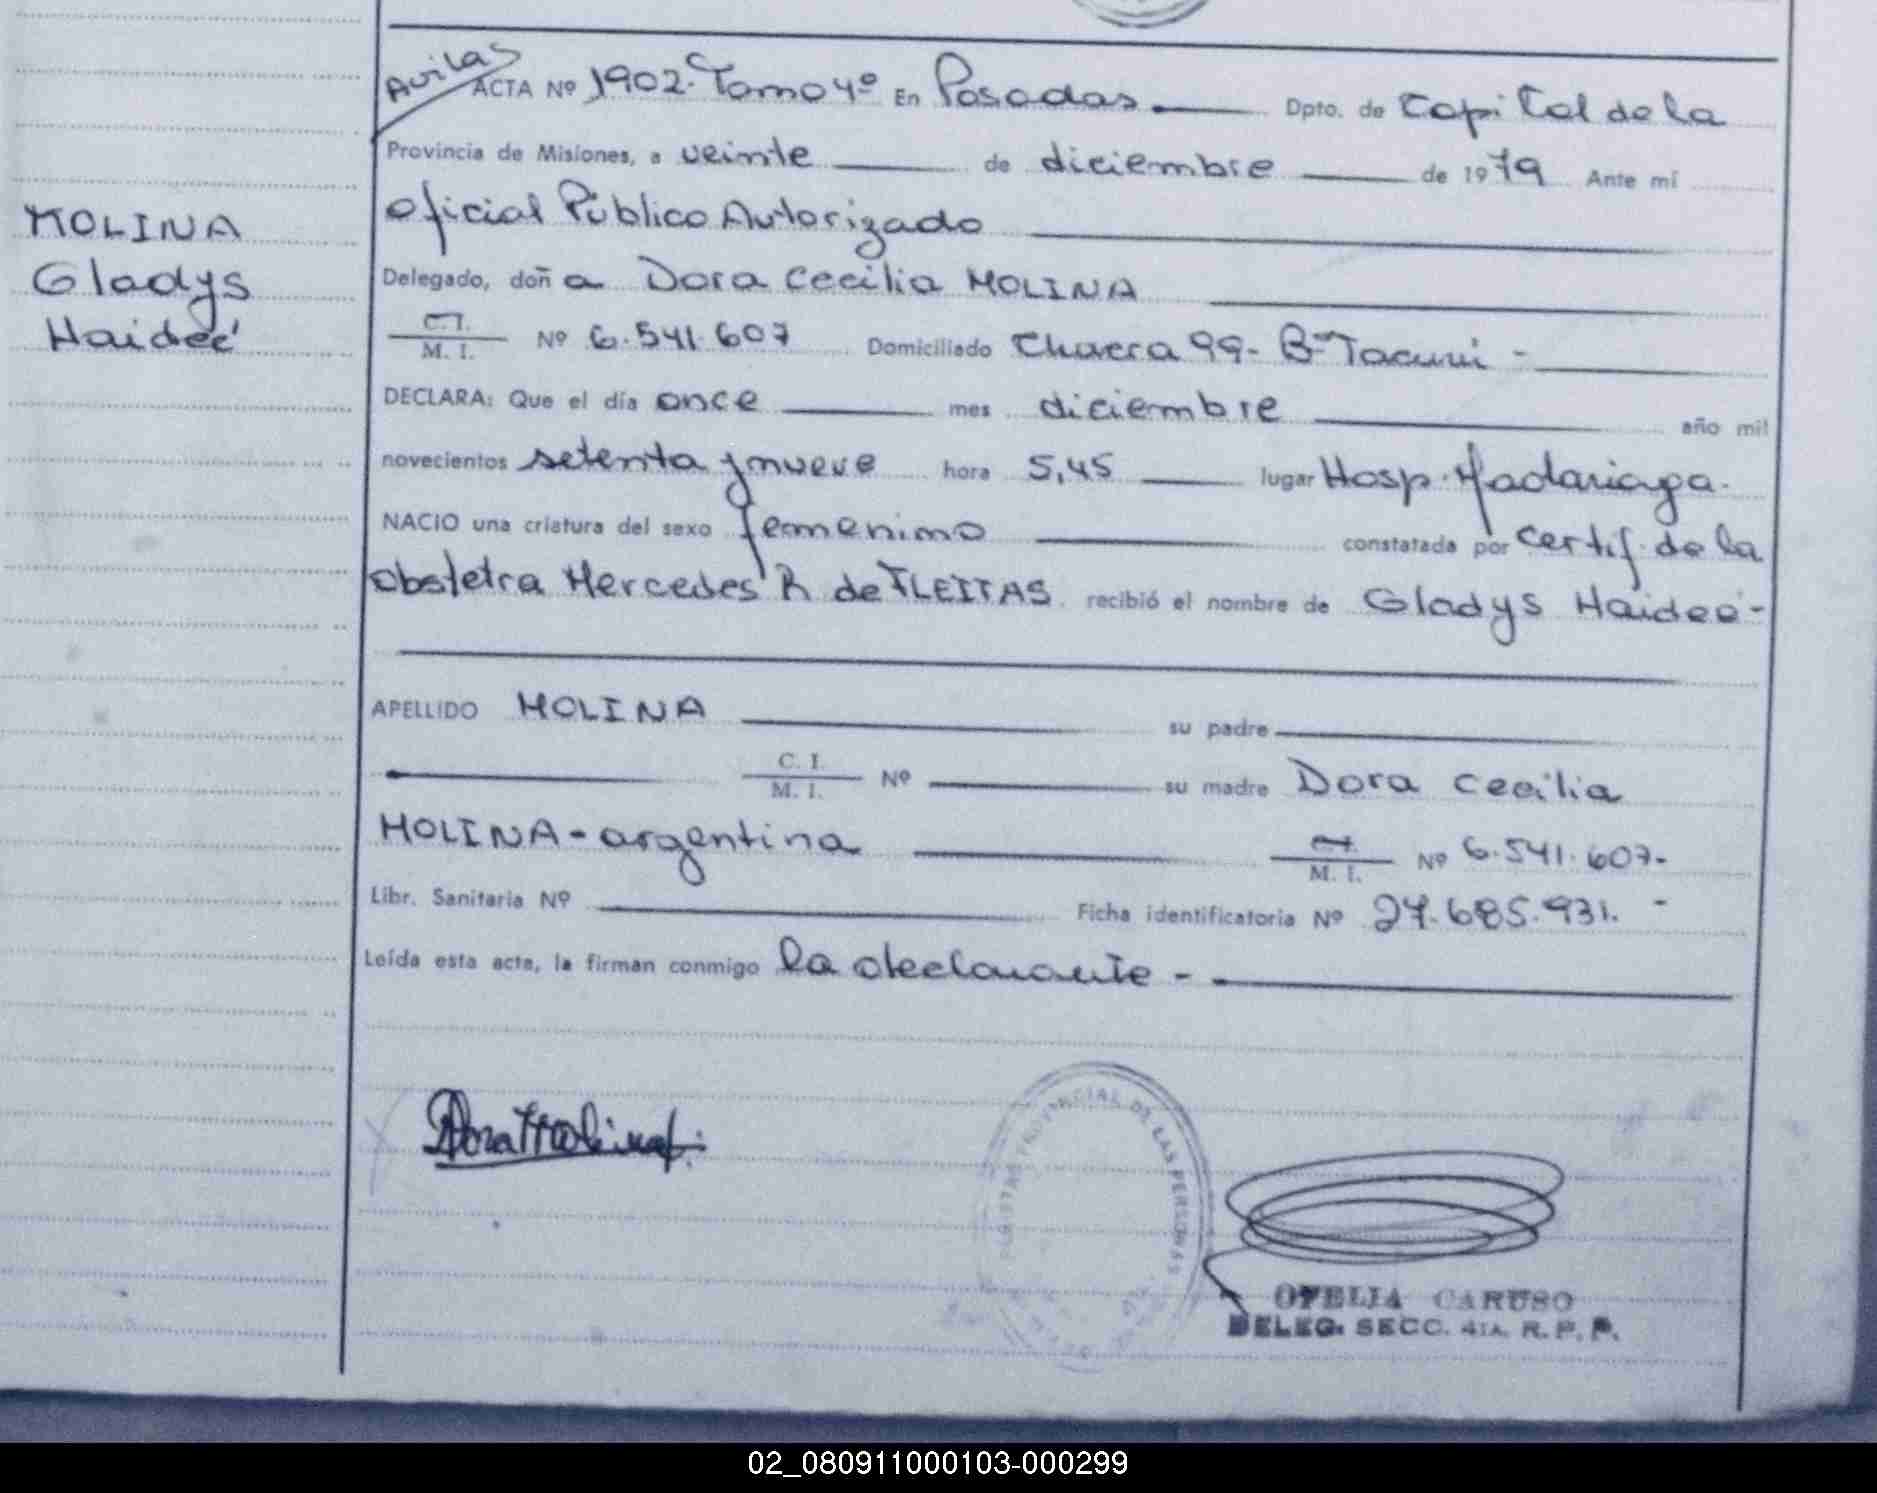 Avilas
ACTA Nº 1902. Tomo 4º En Posadas Dpto. de Capital de la
Provincia de Misiones, a veinte de diciembre de 1979 Ante mí
oficial Público Autorizado
MOLINA
Gladys
Haideé
Delegado, doña Dora Cecilia MOLINA
C.I.
M. I. Nº 6.541.607 Domiciliado Chacra 99- Bº Tacuri -
DECLARA: Que el día once mes diciembre año mil
novecientos setenta y nueve hora 5,45 lugar Hosp. Madariaga.
NACIO una criatura del sexo femenino constatada por certif. de la
obstetra Mercedes R de FLEITAS recibió el nombre de Gladys Haideé-
APELLIDO MOLINA su padre
C. I.
M. I. Nº su madre Dora Cecilia
MOLINA - argentina C.I.
M. I. Nº 6.541.607-
Libr. Sanitaria Nº Ficha identificatoria Nº 27.685.931. -
Leída esta acta, la firman conmigo la declarante -
Dora Molina
PROVINCIAL DE LAS PERSONAS
OFELIA CARUSO
DELEG. SECC. 4TA. R. P. P.
02_080911000103-000299